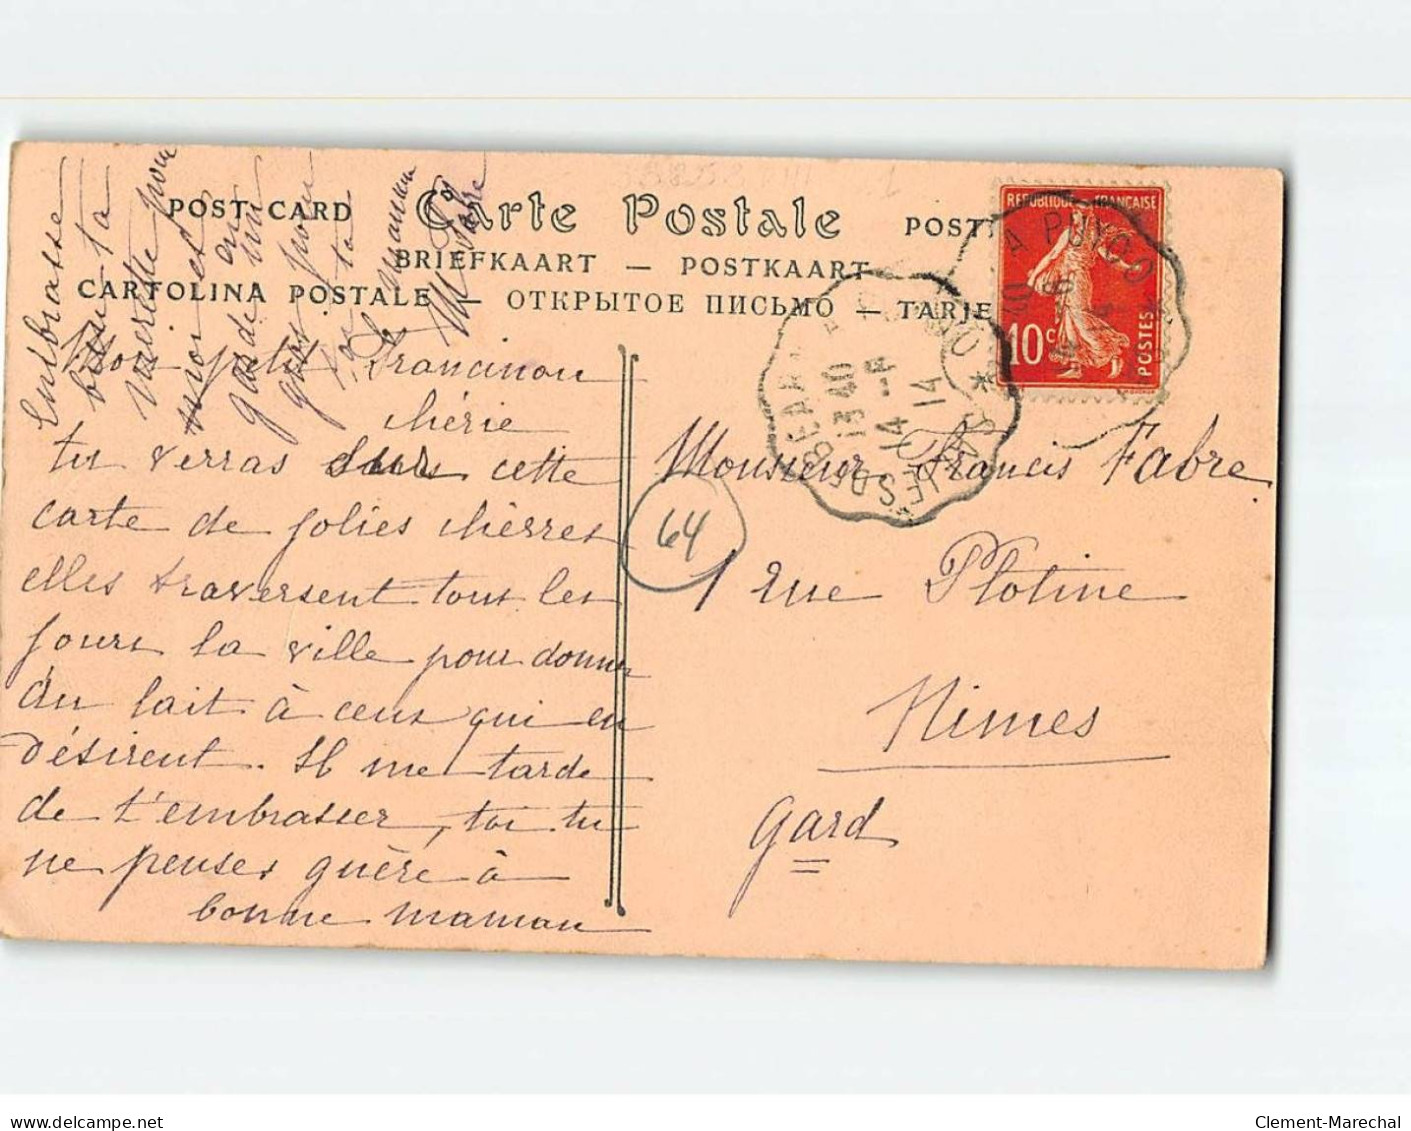 POST-CARD Carte Postale POST
BRIEFKAART — POSTKAART
CARTOLINA POSTALE — ОТКРЫТОЕ ПИСЬМО — TARJE
REPUBLIQUE FRANÇAISE
10c
POSTES
A PUYOO
SALIES DE BÉARN
13 40
14 - 4
14
Mon petit Francinou
chérie
tu verras sur cette
carte de jolies chèvres
elles traversent tous les
jours la ville pour donner
du lait à ceux qui en
désirent. Il me tarde
de t'embrasser, toi tu
ne penses guère à
bonne maman
Embrasse
bien ta
mérette pour
moi et
gardes en un
gros pour
toi ta
maman
M Fabre
64
Monsieur Francis Fabre
1 rue Plotine
Nimes
Gard
Clement-Marechal
https://www.delcampe.net